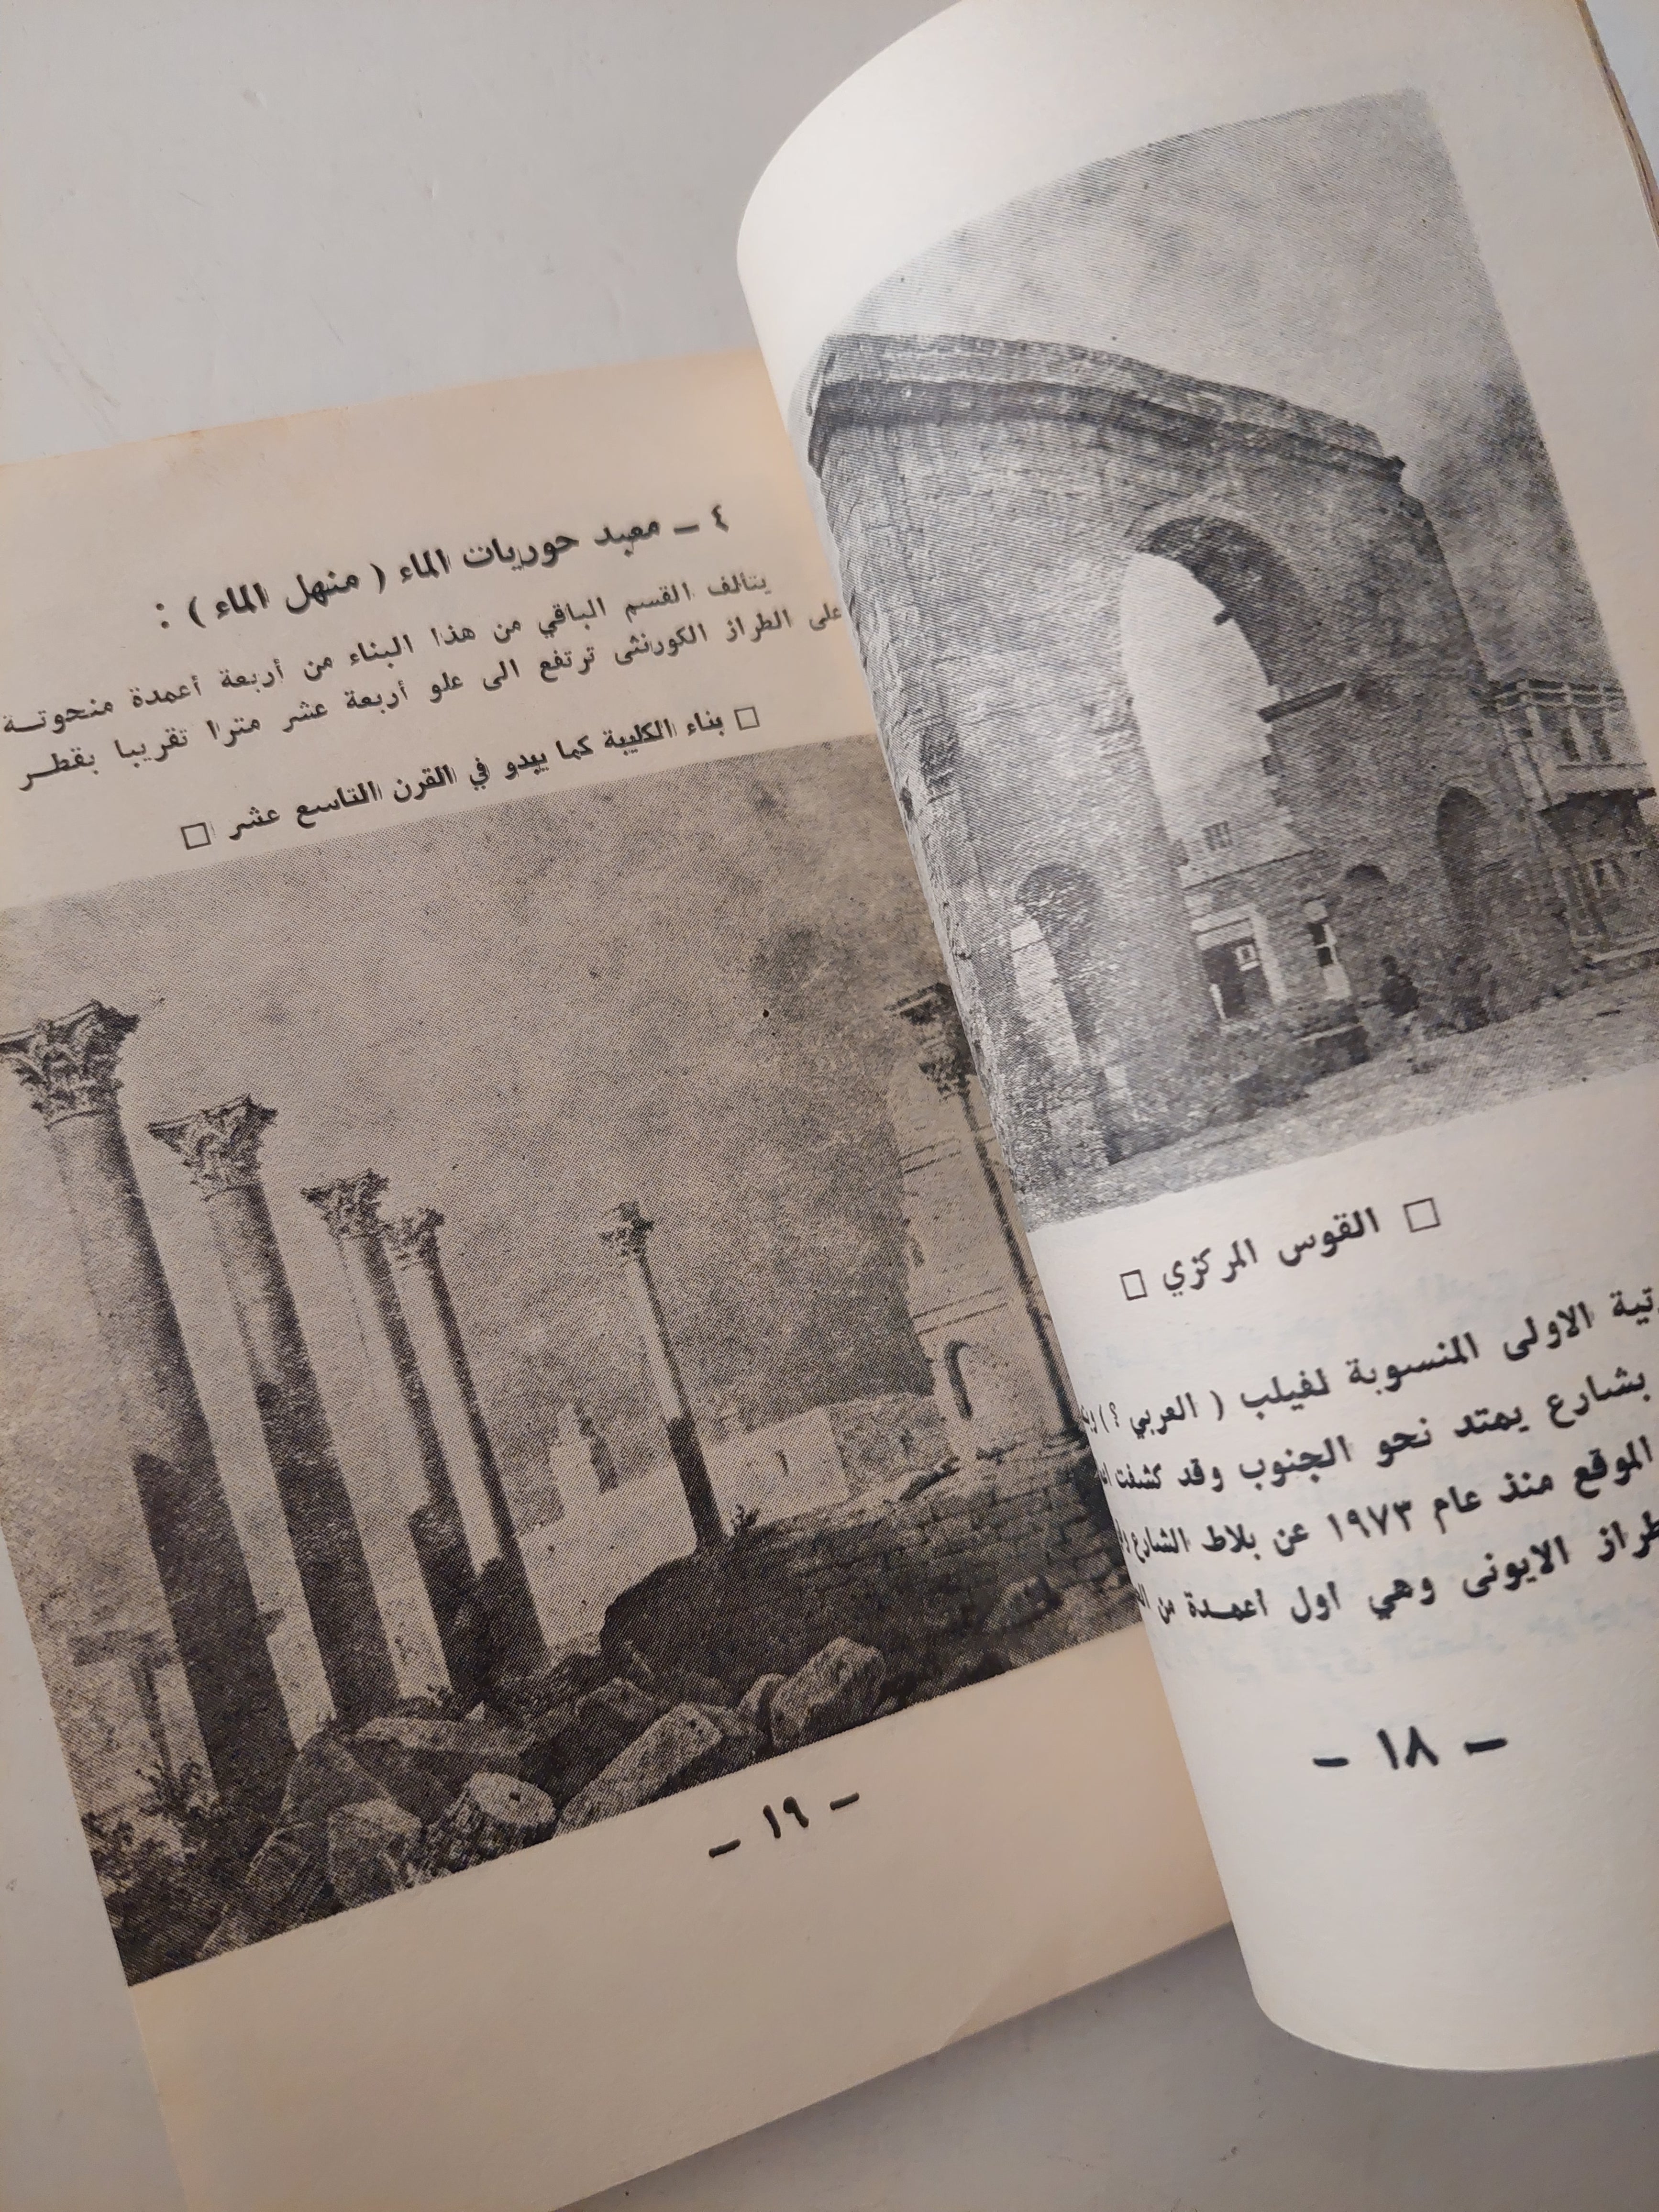 □ القوس المركزي □
الاولى المنسوبة لفيلب ( العربي ؟ )
بشارع يمتد نحو الجنوب وقد كشفت
الموقع منذ عام ١٩٧٣ عن بلاط الشارع
الايونى وهي اول اعمدة من
– ١٨ –
٤ – معبد حوريات الماء ( منهل الماء ) :
يتألف القسم الباقي من هذا البناء من أربعة أعمدة منحوتـة
على الطراز الكورنثى ترتفع الى علو أربعة عشر مترا تقريبا بقطـر
□ بناء الكليبة كما يبدو في القرن التاسع عشر □
– ١٩ –